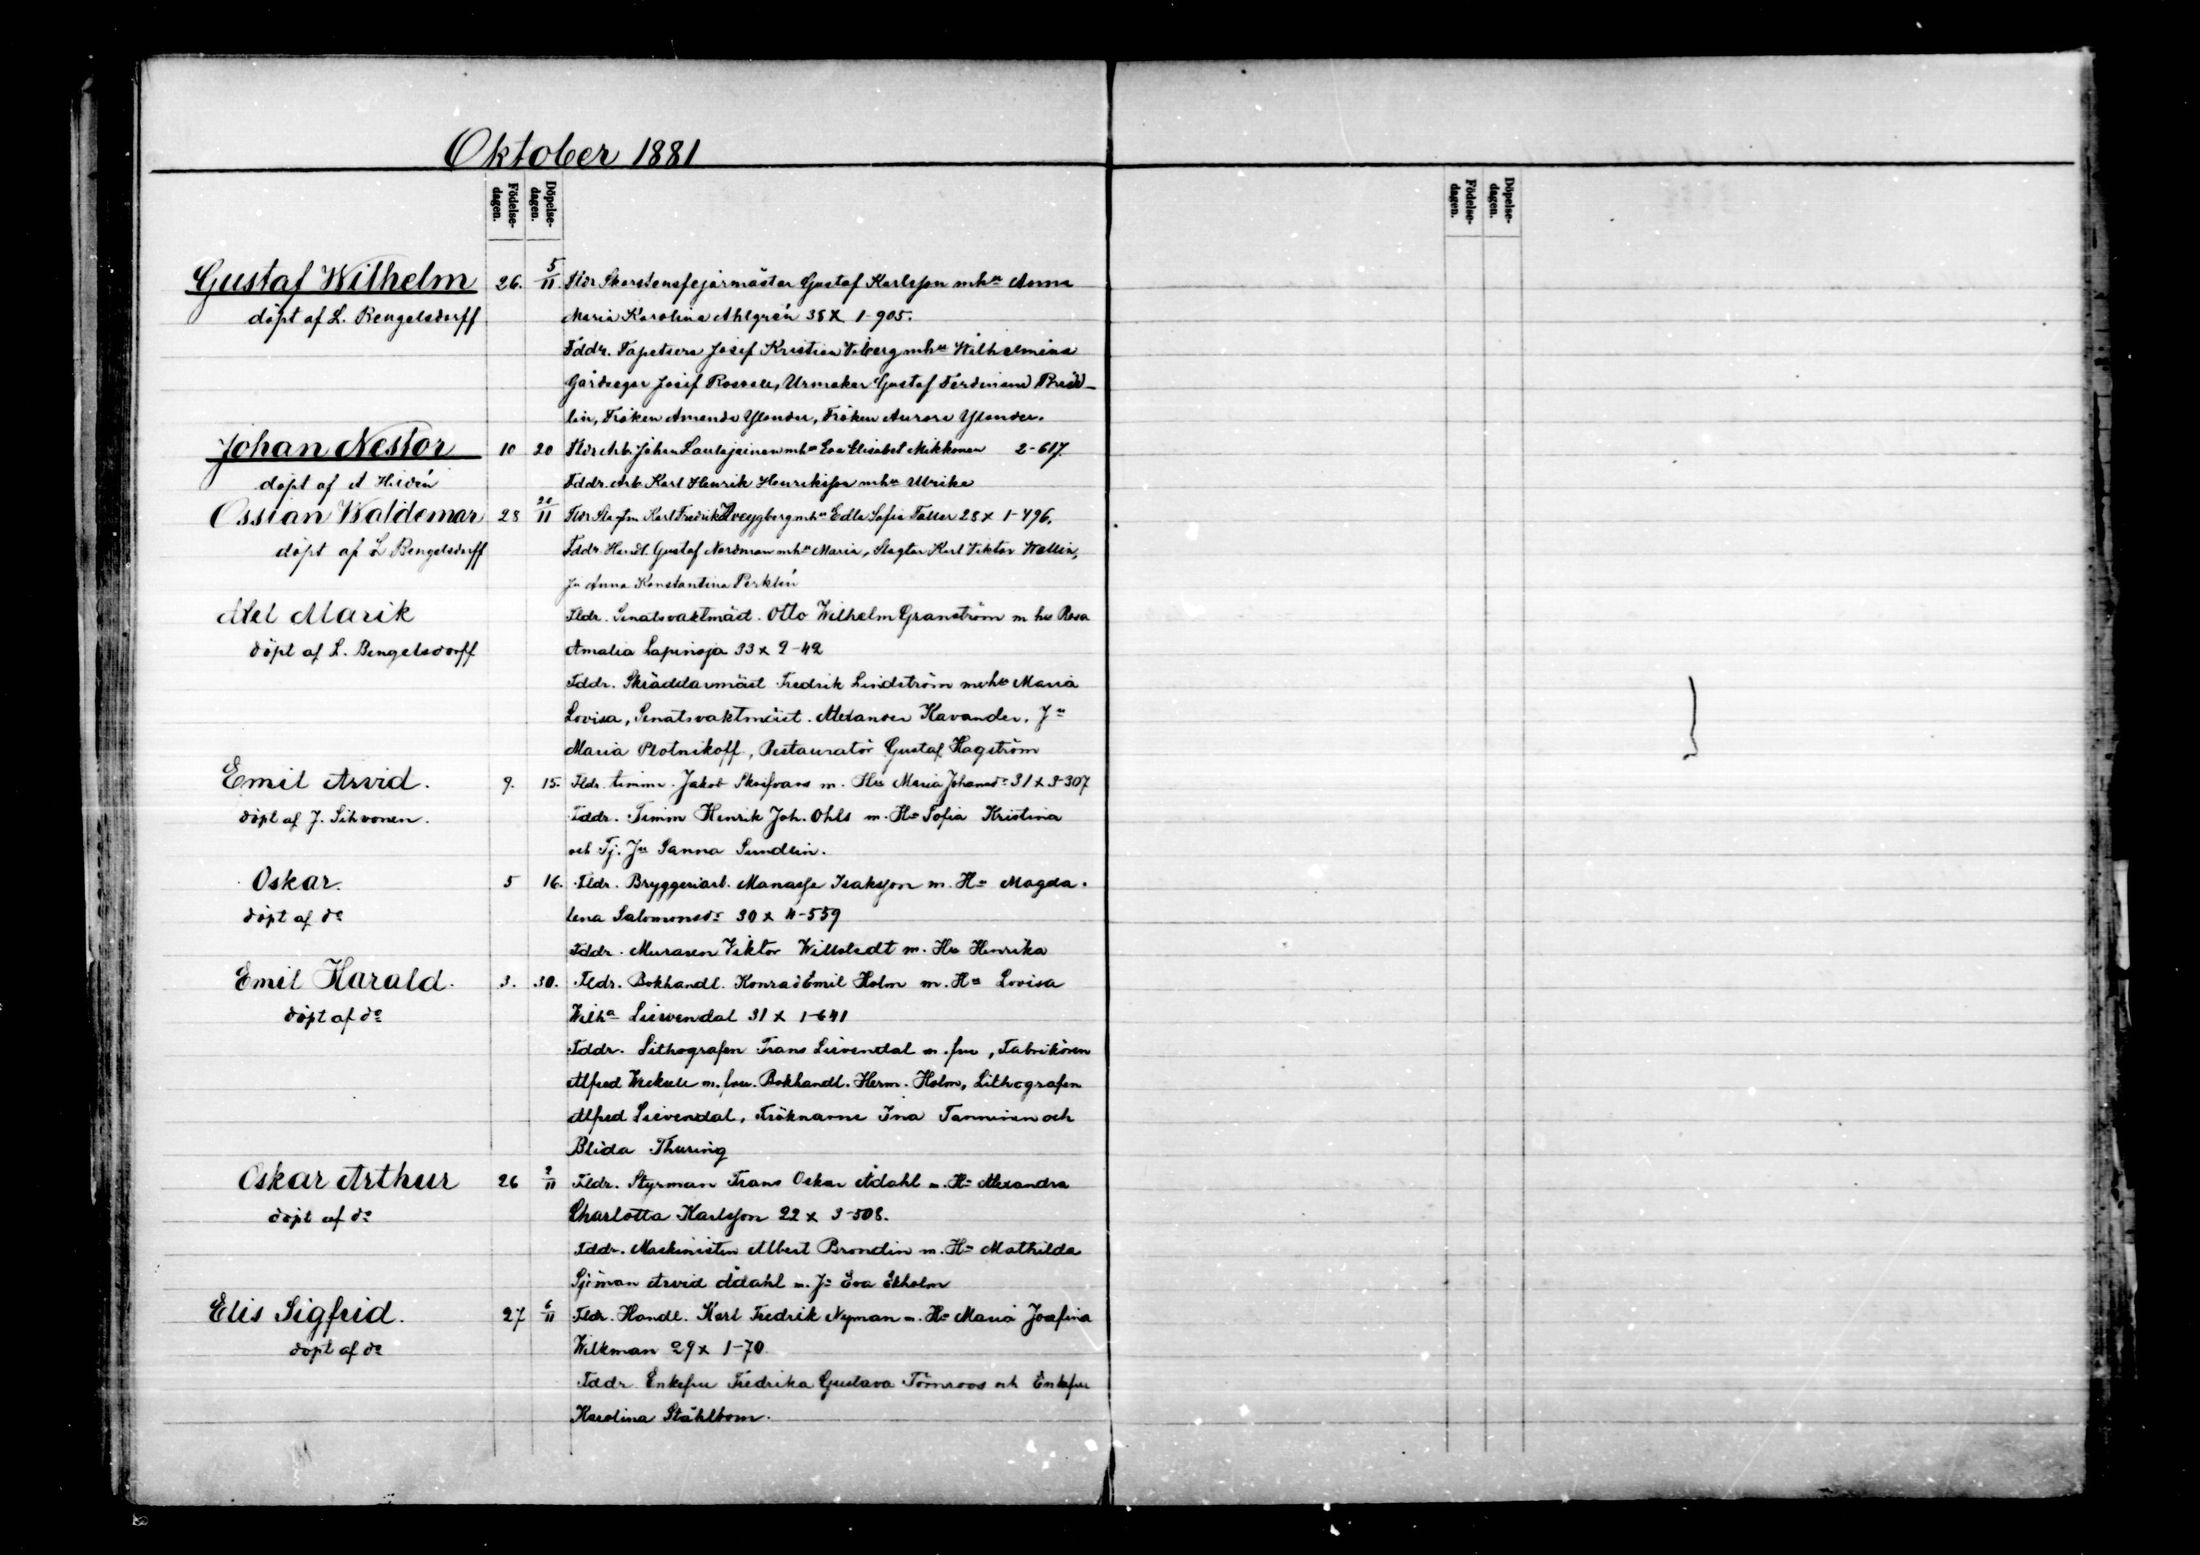 Oktober 1881
Födelse-dagen. Döpelse-dagen. Födelse-dagen. Döpelse-dagen.
Gustaf Wilhelm 26. 5/11. Fldr Skorstensfejarmästar Gustaf Karlsson m h:u Anna
döpt af L. Bengelsdorff Maria Karolina Ahlgrén 38 x 1-905.
Fddr. Tapetsera Josif Kristian Viberg m h:u Wilhelmina
Gårdsegar Josif Rosvall, Urmakar Gustaf Ferdinand Bred-
lin, Fröken Amanda Ylander, Fröken Aurora Ylander.
Johan Nestor 10 20 Fldr Arb. Johan Lautajainen m h:u Eva Elisabet Mikkonen 2-617.
döpt af A Hidén Fddr. Arb Karl Henrik Henriksson m h:u Ulrika
Ossian Waldemar 28 20/11 Fldr Karl Fredrik Sveygberg m h:u Edla Sofia Faller 28 x 1-496.
döpt af L Bengelsdorff Fddr. Handl. Gustaf Nordman m h:u Maria, Slagtar Karl Viktor Wallin,
Ju Anna Konstantina Perklén
Axel Marik Fldr. Senatsvaktmäst. Otto Wilhelm Granström m hu Rosa
döpt af L. Bengelsdorff Amalia Lapinoja 33 x 2-42
Fddr. Skräddarmäst Fredrik Lindström m hu Maria
Lovisa, Senatsvaktmäst. Alexander Kavander, J:u
Maria Plotnikoff, Restauratör Gustaf Hagström
Emil Arvid. 9. 15. Fldr. timmr. Jakob Skoifvars m. Hu Maria Johansd:r 31 x 3-307
döpt af J. Sihvonen. Fddr. Timm Henrik Joh. Ohls m. H:u Sofia Kristina
och Tj. J:u Sanna Sundlin.
Oskar. 5 16. Fldr. Bryggeriarb. Manasse Isaksson m. H:u Magda-
döpt af d:o lena Salomonsd:r 30 x 4-559
Fddr. Muraren Viktor Willstedt m. Hu Henrika
Emil Harald. 3. 30. Fldr. Bokhandl. Konrad Emil Holm m. H:u Lovisa
döpt af d:o Wilh:a Liewendal 31 x 1-641
Fddr. Lithografen Frans Liewendal m. fru, Fabrikören
Alfred Wickell m. fru. Bokhandl. Herm. Holm, Lithografen
Alfred Liewendal, Fröknarne Ina Tanninen och
Blida Thuring
Oskar Arthur 26 2/11 Fldr. Styrman Frans Oskar Ådahl m. H:u Alexandra
döpt af d:o Charlotta Karlsson 22 x 3-508.
Fddr. Maskinisten Albert Brondin m. H:u Mathilda
Sjöman Arvid Ådahl m. J:u Eva Ekholm
Elis Sigfrid. 27 6/11 Fldr. Handl. Karl Fredrik Nyman m. H:u Maria Josefina
döpt af d:o Wilkman 29 x 1-70
Fddr Enkefru Fredrika Gustava Törnroos och Enkefru
Karolina Ståhlbom.